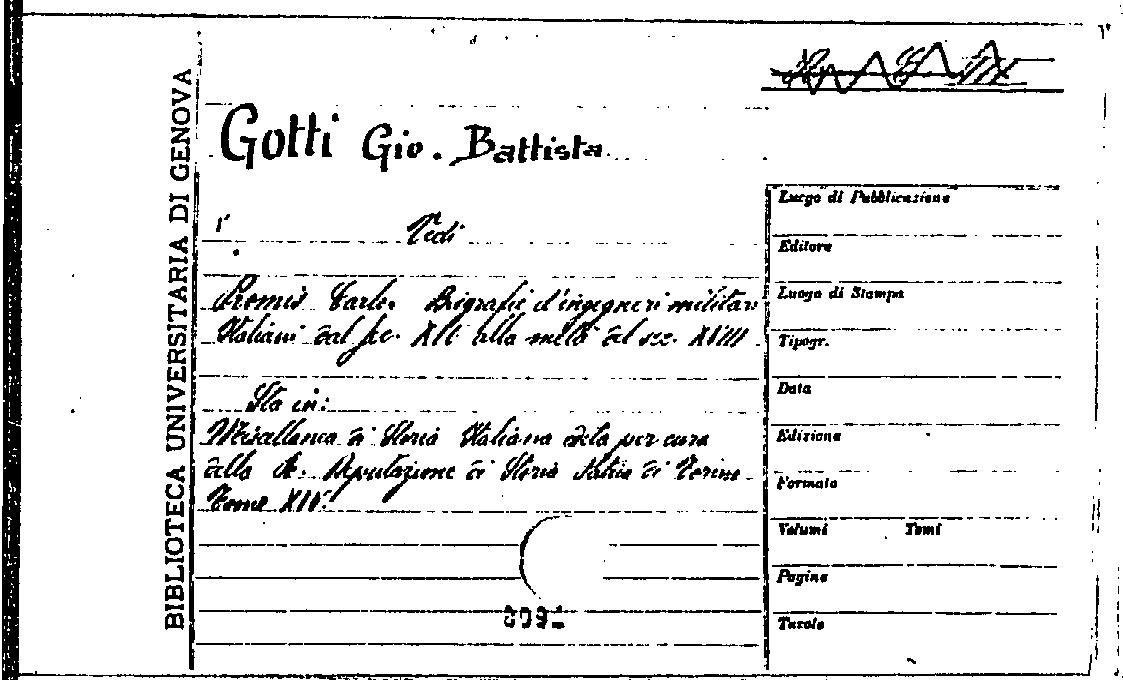 BIBLIOTECA UNIVERSITARIA DI GENOVA
Gotti Gio. Battista
Vedi
Promis Carlo. Biografie d'ingegneri militari
Italiani dal sec. XIV alla metà del sec. XVIII
Sta in:
Miscellanea di Storia Italiana edita per cura
della R. Deputazione di Storia Patria di Torino
Tomo XIV.
Luogo di Pubblicazione
Editore
Luogo di Stampa
Tipogr.
Data
Edizione
Formato
Volumi Tomi
Pagine
Tavole